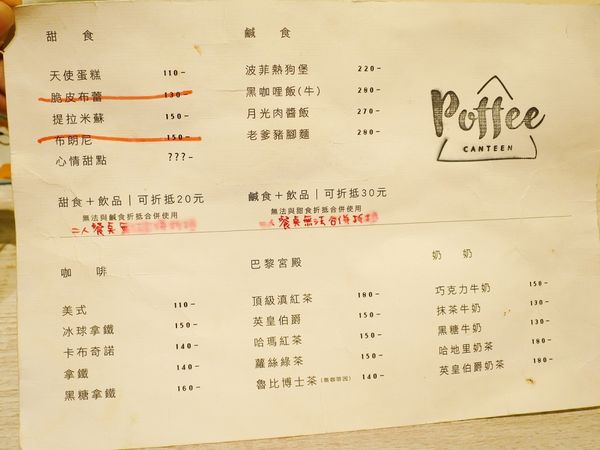 甜 食
天使蛋糕 110-
脆皮布蕾 130-
提拉米蘇 150-
布朗尼 150-
心情甜點 ???-
甜食＋飲品｜可折抵20元
無法與鹹食折抵合併使用
二人餐桌
鹹 食
波菲熱狗堡 220-
黑咖哩飯(牛) 280-
月光肉醬飯 270-
老爹豬腳麵 280-
鹹食＋飲品｜可折抵30元
無法與甜食折抵合併使用
二人餐桌無法合併折抵
Poffee
CANTEEN
咖 啡
美式 110-
冰球拿鐵 150-
卡布奇諾 140-
拿鐵 140-
黑糖拿鐵 160-
巴黎宮殿
頂級滇紅茶 180-
英皇伯爵 150-
哈瑪紅茶 150-
蘿絲綠茶 150-
魯比博士茶(無咖啡因) 140-
奶 奶
巧克力牛奶 150-
抹茶牛奶 130-
黑糖牛奶 130-
哈地里奶茶 180-
英皇伯爵奶茶 180-